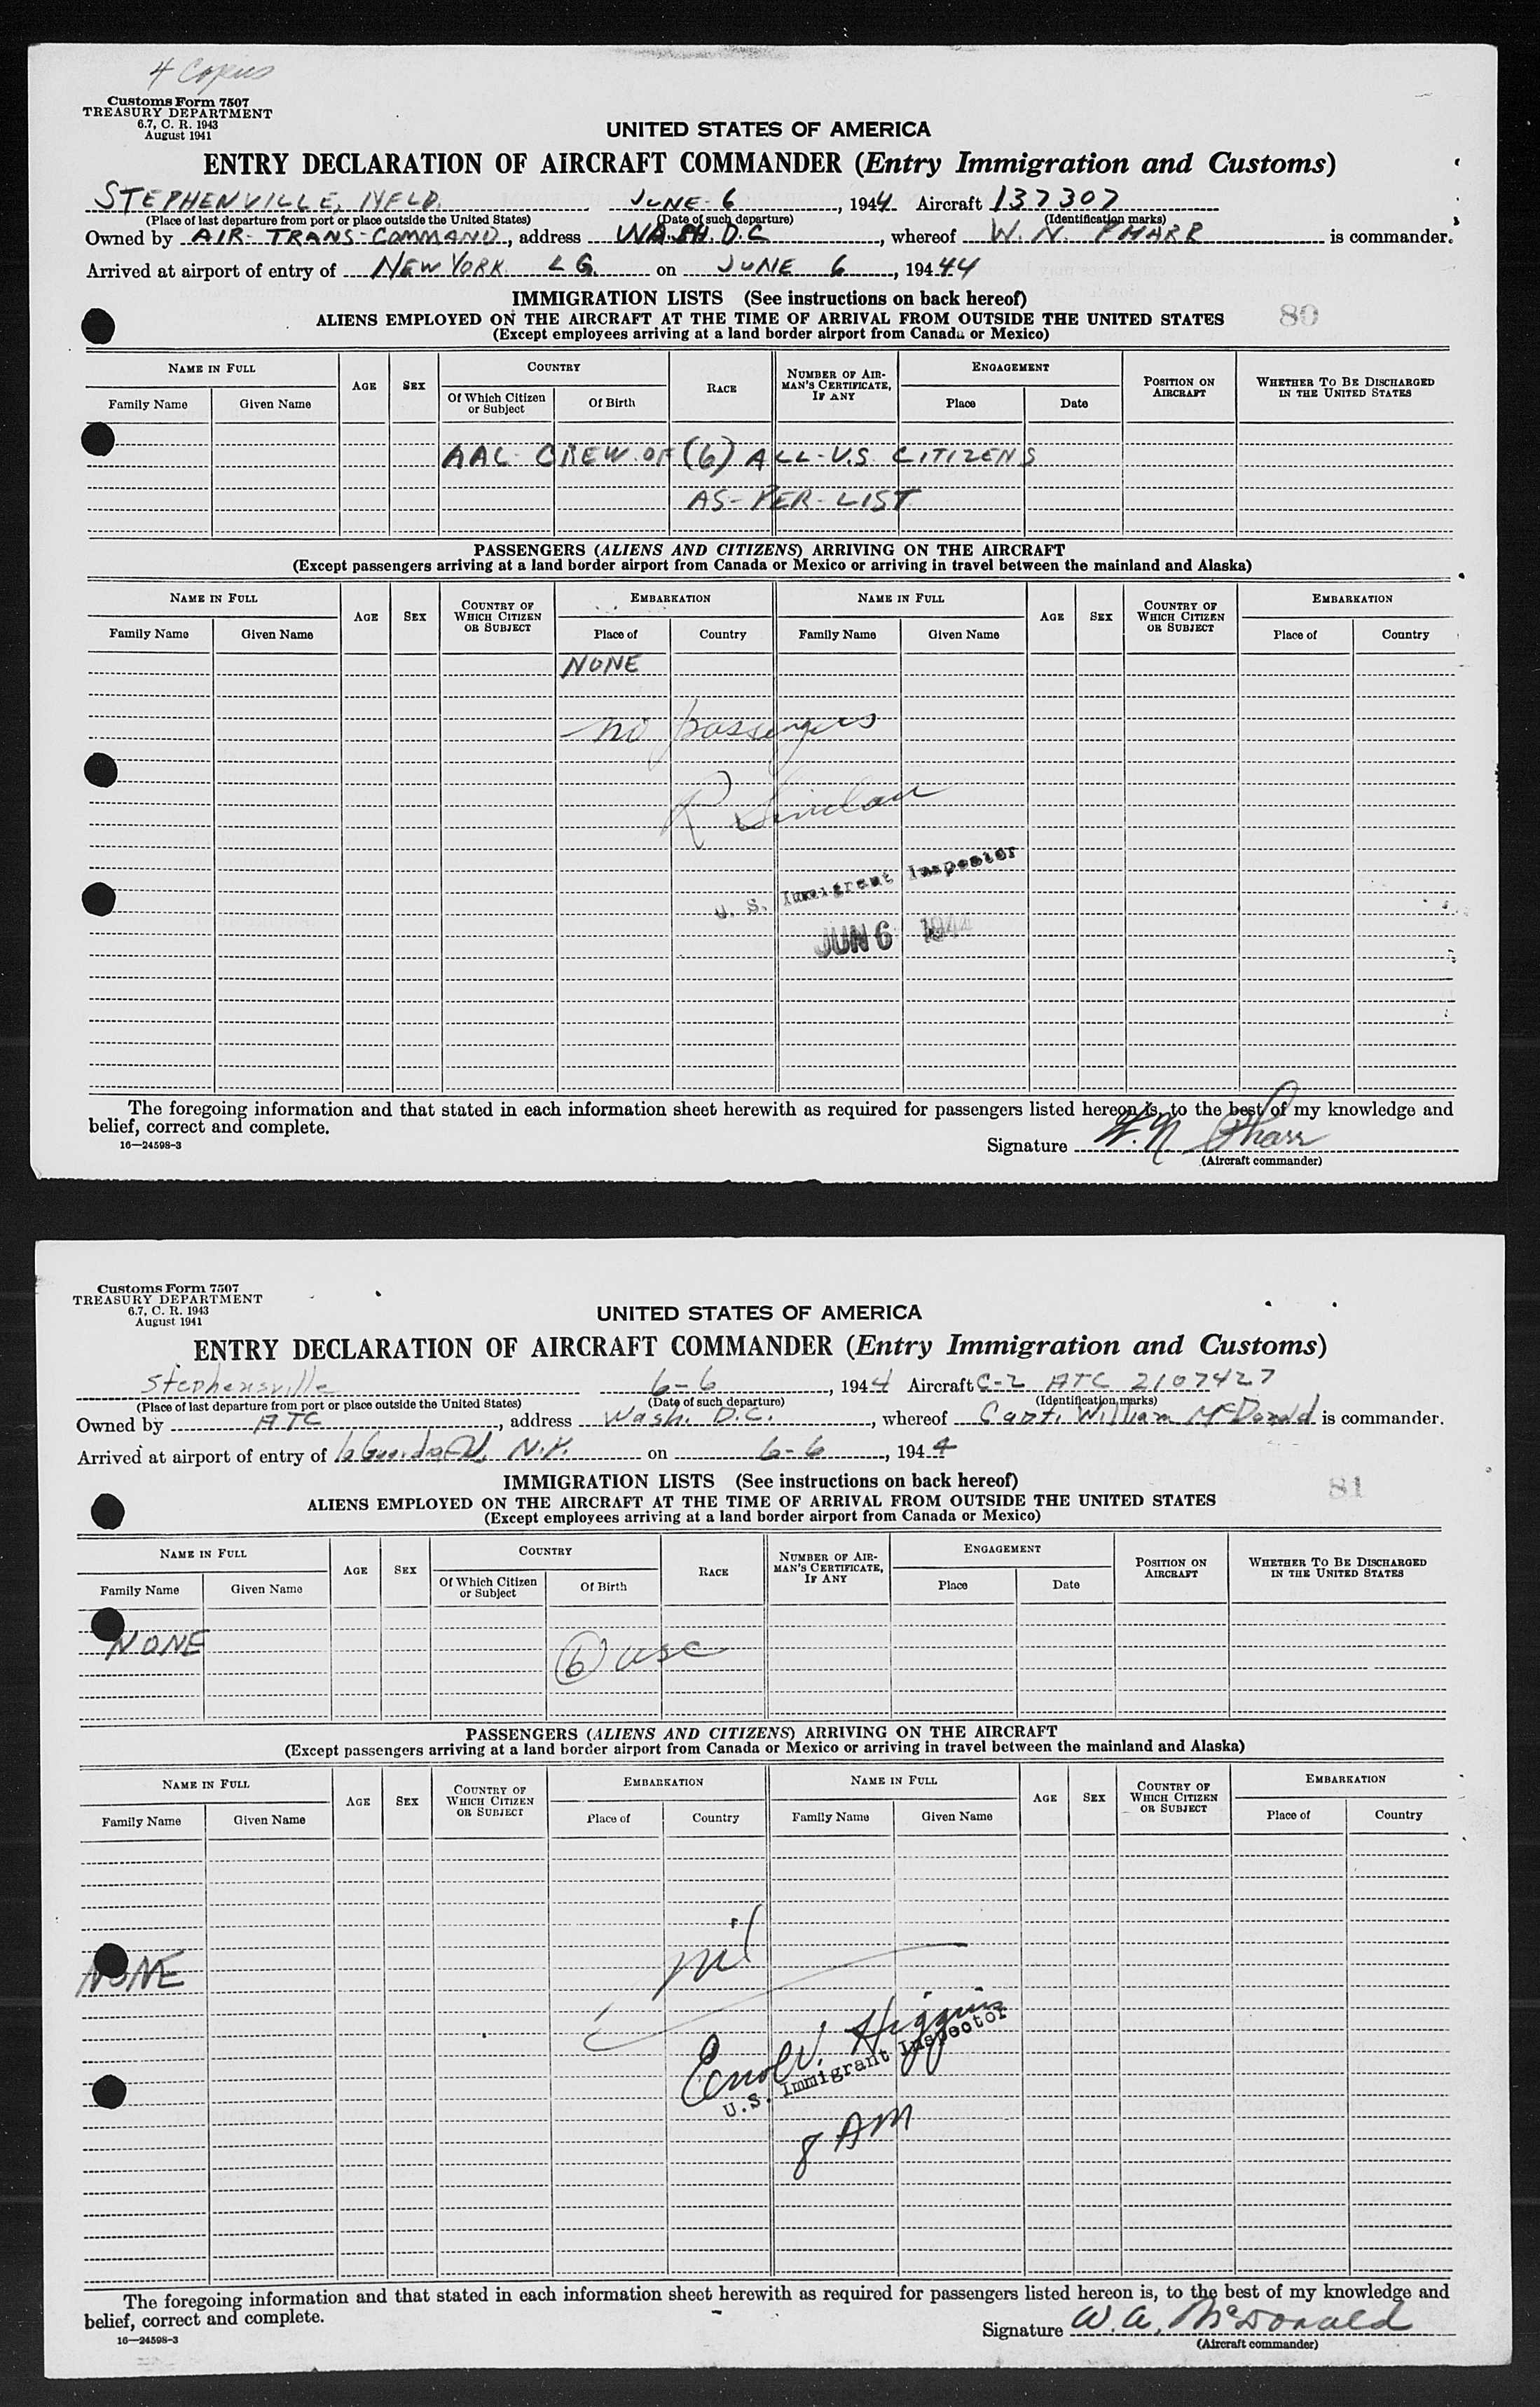 4 Copies
Customs Form 7507
TREASURY DEPARTMENT
6.7, C. R. 1943
August 1941
UNITED STATES OF AMERICA
ENTRY DECLARATION OF AIRCRAFT COMMANDER (Entry Immigration and Customs)
STEPHENVILLE, NFLD. JUNE 6, 1944 Aircraft 137307
(Place of last departure from port or place outside the United States) (Date of such departure) (Identification marks)
Owned by AIR-TRANS-COMMAND, address WASH. D.C, whereof W. N. PHARR is commander.
Arrived at airport of entry of NEW YORK LG. on JUNE 6, 19444
IMMIGRATION LISTS (See instructions on back hereof)
80
ALIENS EMPLOYED ON THE AIRCRAFT AT THE TIME OF ARRIVAL FROM OUTSIDE THE UNITED STATES
(Except employees arriving at a land border airport from Canada or Mexico)
NAME IN FULL AGE SEX COUNTRY RACE NUMBER OF AIRMAN'S CERTIFICATE, IF ANY ENGAGEMENT POSITION ON AIRCRAFT WHETHER TO BE DISCHARGED IN THE UNITED STATES
Family Name Given Name Of Which Citizen or Subject Of Birth Place Date
AAL-CREW-OF (6) ALL-U.S. CITIZENS
AS-PER-LIST
PASSENGERS (ALIENS AND CITIZENS) ARRIVING ON THE AIRCRAFT
(Except passengers arriving at a land border airport from Canada or Mexico or arriving in travel between the mainland and Alaska)
NAME IN FULL AGE SEX COUNTRY OF WHICH CITIZEN OR SUBJECT EMBARKATION NAME IN FULL AGE SEX COUNTRY OF WHICH CITIZEN OR SUBJECT EMBARKATION
Family Name Given Name Place of Country Family Name Given Name Place of Country
NONE
no passengers
R Sinclair
U. S. Immigrant Inspector
JUN 6 1944
The foregoing information and that stated in each information sheet herewith as required for passengers listed hereon is, to the best of my knowledge and
belief, correct and complete.
16—24598-3
Signature W. N Pharr
(Aircraft commander)
Customs Form 7507
TREASURY DEPARTMENT
6.7, C. R. 1943
August 1941
UNITED STATES OF AMERICA
ENTRY DECLARATION OF AIRCRAFT COMMANDER (Entry Immigration and Customs)
Stephensville 6-6, 1944 Aircraft C-2 ATC 2107427
(Place of last departure from port or place outside the United States) (Date of such departure) (Identification marks)
Owned by ATC, address Wash. D.C., whereof Capt. William McDonald is commander.
Arrived at airport of entry of N.Y. on 6-6, 1944
IMMIGRATION LISTS (See instructions on back hereof)
81
ALIENS EMPLOYED ON THE AIRCRAFT AT THE TIME OF ARRIVAL FROM OUTSIDE THE UNITED STATES
(Except employees arriving at a land border airport from Canada or Mexico)
NAME IN FULL AGE SEX COUNTRY RACE NUMBER OF AIRMAN'S CERTIFICATE, IF ANY ENGAGEMENT POSITION ON AIRCRAFT WHETHER TO BE DISCHARGED IN THE UNITED STATES
Family Name Given Name Of Which Citizen or Subject Of Birth Place Date
NONE (6) USC
PASSENGERS (ALIENS AND CITIZENS) ARRIVING ON THE AIRCRAFT
(Except passengers arriving at a land border airport from Canada or Mexico or arriving in travel between the mainland and Alaska)
NAME IN FULL AGE SEX COUNTRY OF WHICH CITIZEN OR SUBJECT EMBARKATION NAME IN FULL AGE SEX COUNTRY OF WHICH CITIZEN OR SUBJECT EMBARKATION
Family Name Given Name Place of Country Family Name Given Name Place of Country
NONE nil
Errol V. Higgins
U.S. Immigrant Inspector
8 AM
The foregoing information and that stated in each information sheet herewith as required for passengers listed hereon is, to the best of my knowledge and
belief, correct and complete.
16—24598-3
Signature W. A. McDonald
(Aircraft commander)